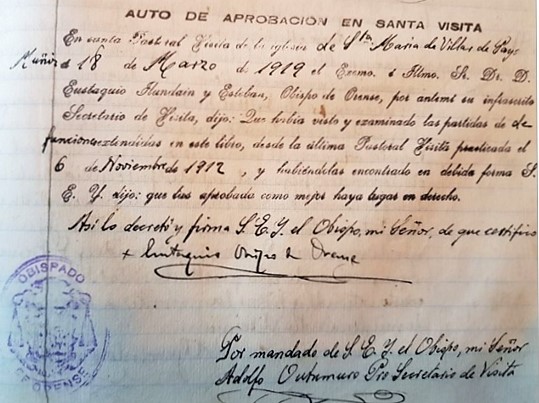 AUTO DE APROBACIÓN EN SANTA VISITA
En santa Pastoral Visita de la iglesia de Sta María de Villar de Payo
Muñiz á 18 de Marzo de 1919 el Excmo. é Iltmo. Sr. Dr. D.
Eustaquio Ilundain y Esteban, Obispo de Orense, por antemi su infrascrito
Secretario de Visita, dijo: Que había visto y examinado las partidas de de-
funciones extendidas en este libro, desde la última Pastoral Visita practicada el
6 de Noviembre de 1912, y habiéndolas encontrado en debida forma S.
E. Y. dijo: que las aprobaba como mejor haya lugar en derecho.
Así lo decretó y firma S. E. Y. el Obispo, mi Señor, de que certifico
+ Eustaquio Obispo de Orense
OBISPADO
DE ORENSE
Por mandado de S. E. Y. el Obispo, mi Señor
Adolfo Outumuro Pro Secretario de Visita